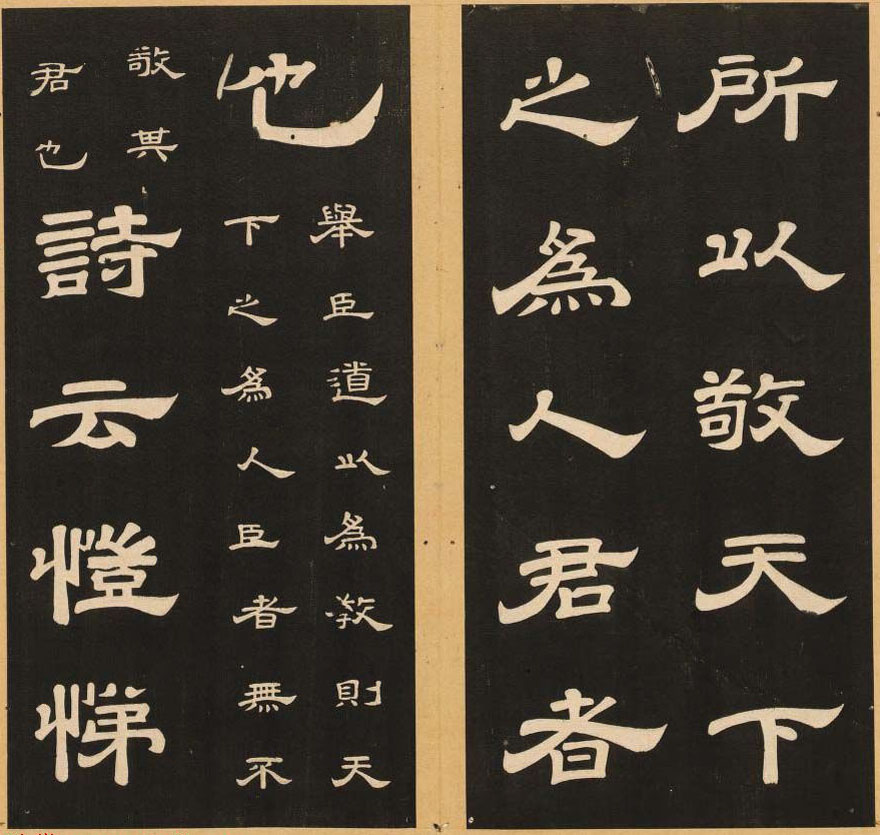 所以敬天下
之為人君者
也舉臣道以為教則天
下之為人臣者無不
敬其
君也詩云愷悌